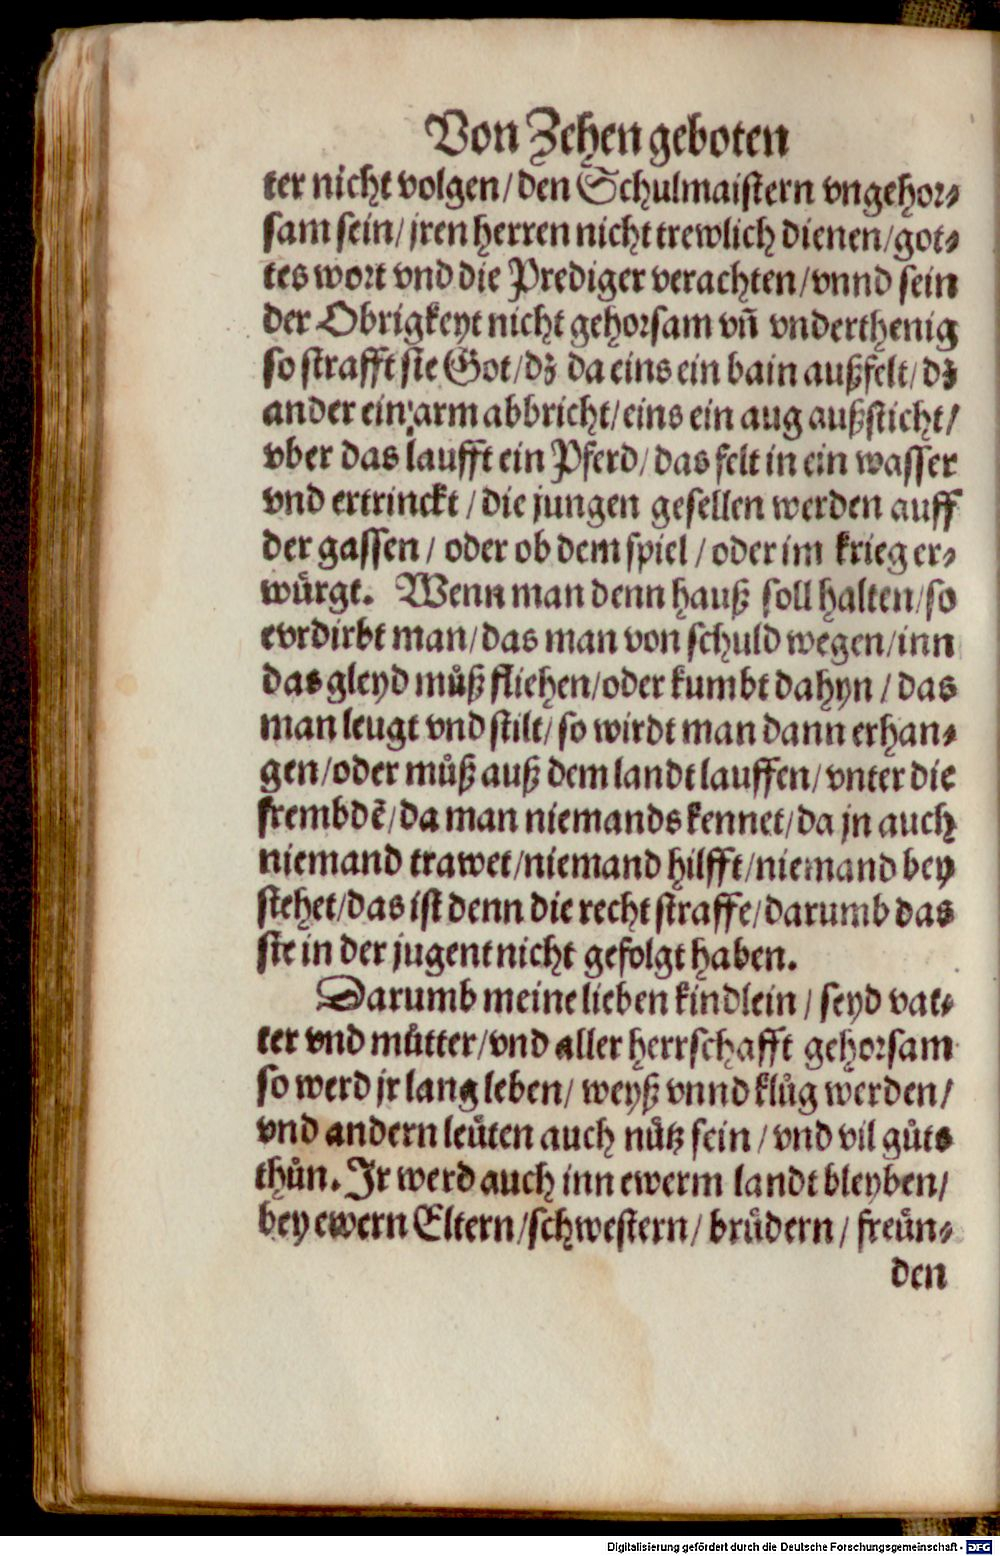 Von Zehen geboten
ter nicht volgen/ den Schulmaistern vngehor⸗
sam sein/ jren herren nicht trewlich dienen/ got⸗
tes wort vnd die Prediger verachten/ vnnd sein
der Obrigkeyt nicht gehorsam vñ vnderthenig
so strafft sie Got/ dz da eins ein bain außfelt/ dz
ander ein arm abbricht/ eins ein aug außsticht/
vber das laufft ein Pferd/ das felt in ein wasser
vnd ertrinckt / die jungen gesellen werden auff
der gassen / oder ob dem spiel / oder im krieg er⸗
würgt. Wenn man denn hauß soll halten/ so
evrdirbt man/ das man von schuld wegen/ inn
das gleyd můß fliehen/ oder kumbt dahyn / das
man leugt vnd stilt/ so wirdt man dann erhan⸗
gen/ oder můß auß dem landt lauffen/ vnter die
frembdē/ da man niemands kennet/ da jn auch
niemand trawet/ niemand hilfft/ niemand bey
stehet/ das ist denn die recht straffe/ darumb das
sie in der jugent nicht gefolgt haben.
Darumb meine lieben kindlein / seyd vat⸗
ter vnd můtter/ vnd aller herrschafft gehorsam
so werd jr lang leben/ weyß vnnd klůg werden/
vnd andern leůten auch nütz sein / vnd vil gůts
thůn. Ir werd auch inn ewerm landt bleyben/
bey ewern Eltern/ schwestern/ brůdern / freůn⸗
den
Digitalisierung gefördert durch die Deutsche Forschungsgemeinschaft - DFG